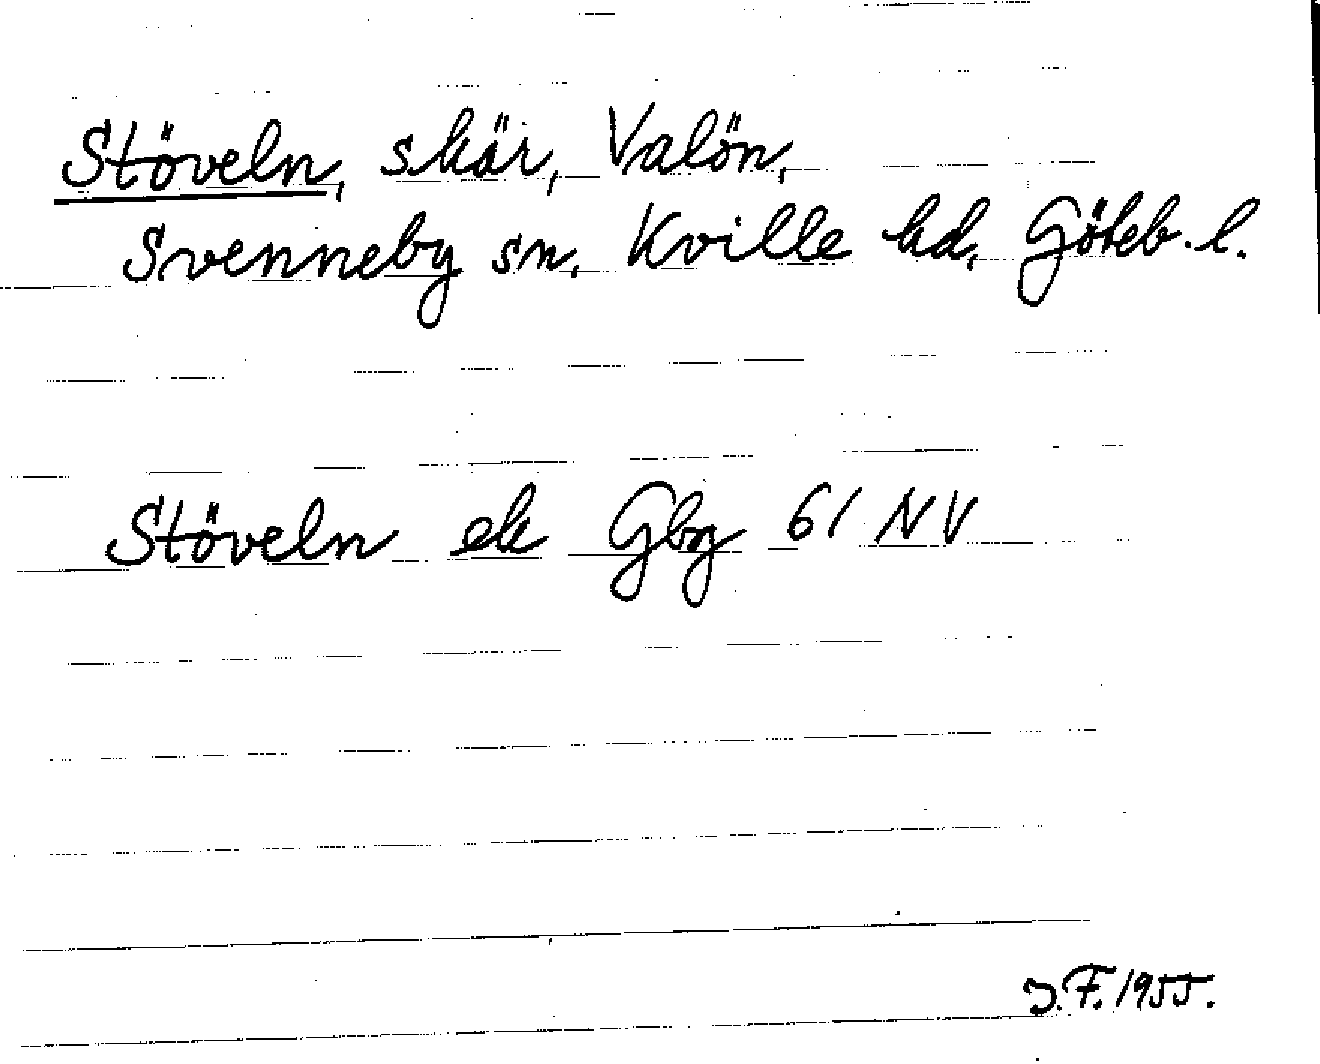 Stöveln, skär, Valön,
Svenneby sn. Kville hd. Göteb. l.
Stöveln ek Gbg 61 NV
J.F. 1955.